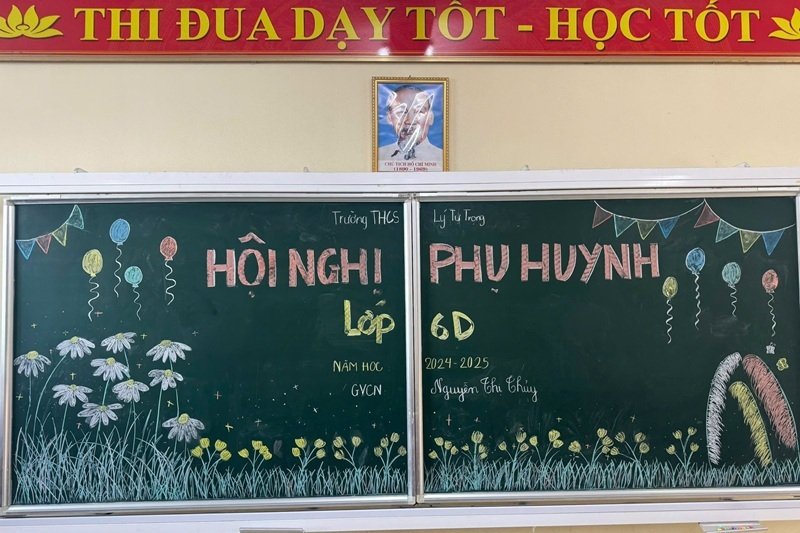 THI ĐUA DẠY TỐT - HỌC TỐT
CHỦ TỊCH HỒ CHÍ MINH
(1890 - 1969)
Trường THCS Lý Tự Trọng
HỘI NGHỊ PHỤ HUYNH
Lớp 6D
NĂM HỌC 2024-2025
GVCN Nguyễn Thị Thủy